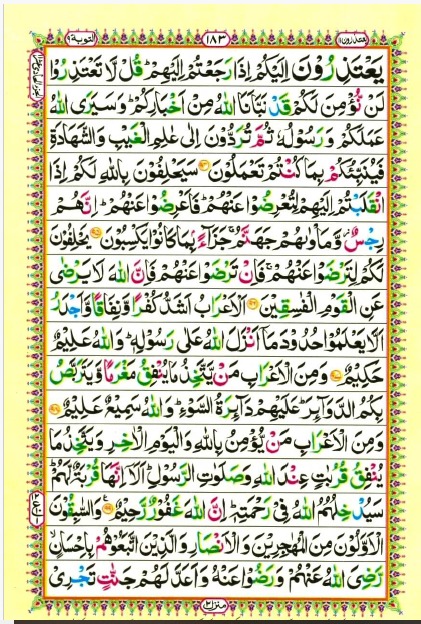 یعتذرون ۱۱
۱۸۳
التوبة ۹
يَعْتَذِرُوْنَ اِلَيْكُمْ اِذَا رَجَعْتُمْ اِلَيْهِمْ ؕ قُلْ لَّا تَعْتَذِرُوْا
لَنْ نُّؤْمِنَ لَكُمْ قَدْ نَبَّاَنَا اللّٰهُ مِنْ اَخْبَارِكُمْ ؕ وَسَيَرَى اللّٰهُ
عَمَلَكُمْ وَرَسُوْلُهٗ ثُمَّ تُرَدُّوْنَ اِلٰى عٰلِمِ الْغَيْبِ وَالشَّهَادَةِ
فَيُنَبِّئُكُمْ بِمَا كُنْتُمْ تَعْمَلُوْنَ ۹۴ سَيَحْلِفُوْنَ بِاللّٰهِ لَكُمْ اِذَا
انْقَلَبْتُمْ اِلَيْهِمْ لِتُعْرِضُوْا عَنْهُمْ ؕ فَاَعْرِضُوْا عَنْهُمْ ؕ اِنَّهُمْ
رِجْسٌ ؗ وَّمَاْوٰىهُمْ جَهَنَّمُ ۚ جَزَآءًۢ بِمَا كَانُوْا يَكْسِبُوْنَ ۹۵ يَحْلِفُوْنَ
لَكُمْ لِتَرْضَوْا عَنْهُمْ ۚ فَاِنْ تَرْضَوْا عَنْهُمْ فَاِنَّ اللّٰهَ لَا يَرْضٰى
عَنِ الْقَوْمِ الْفٰسِقِيْنَ ۹۶ اَلْاَعْرَابُ اَشَدُّ كُفْرًا وَّنِفَاقًا وَّاَجْدَرُ
اَلَّا يَعْلَمُوْا حُدُوْدَ مَآ اَنْزَلَ اللّٰهُ عَلٰى رَسُوْلِهٖ ؕ وَاللّٰهُ عَلِيْمٌ
حَكِيْمٌ ۹۷ وَمِنَ الْاَعْرَابِ مَنْ يَّتَّخِذُ مَا يُنْفِقُ مَغْرَمًا وَّيَتَرَبَّصُ
بِكُمُ الدَّوَآئِرَ ؕ عَلَيْهِمْ دَآئِرَةُ السَّوْءِ ؕ وَاللّٰهُ سَمِيْعٌ عَلِيْمٌ ۹۸
وَمِنَ الْاَعْرَابِ مَنْ يُّؤْمِنُ بِاللّٰهِ وَالْيَوْمِ الْاٰخِرِ وَيَتَّخِذُ مَا
يُنْفِقُ قُرُبٰتٍ عِنْدَ اللّٰهِ وَصَلَوٰتِ الرَّسُوْلِ ؕ اَلَآ اِنَّهَا قُرْبَةٌ لَّهُمْ ؕ
سَيُدْخِلُهُمُ اللّٰهُ فِيْ رَحْمَتِهٖ ؕ اِنَّ اللّٰهَ غَفُوْرٌ رَّحِيْمٌ ۹۹ وَالسّٰبِقُوْنَ
الْاَوَّلُوْنَ مِنَ الْمُهٰجِرِيْنَ وَالْاَنْصَارِ وَالَّذِيْنَ اتَّبَعُوْهُمْ بِاِحْسَانٍ ۙ
رَّضِيَ اللّٰهُ عَنْهُمْ وَرَضُوْا عَنْهُ وَاَعَدَّ لَهُمْ جَنّٰتٍ تَجْرِيْ
منزل ۲